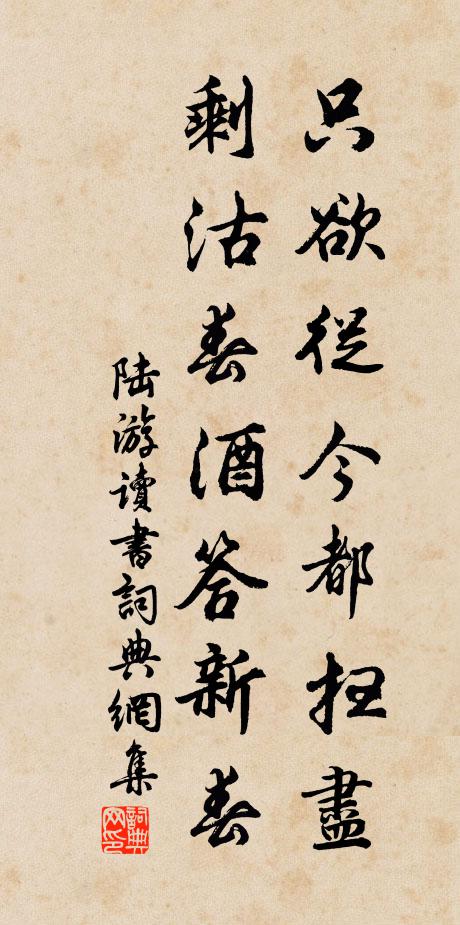 只欲從今都扫盡
剩沽春酒答新春
陆游讀書詞典網集
詞典网印